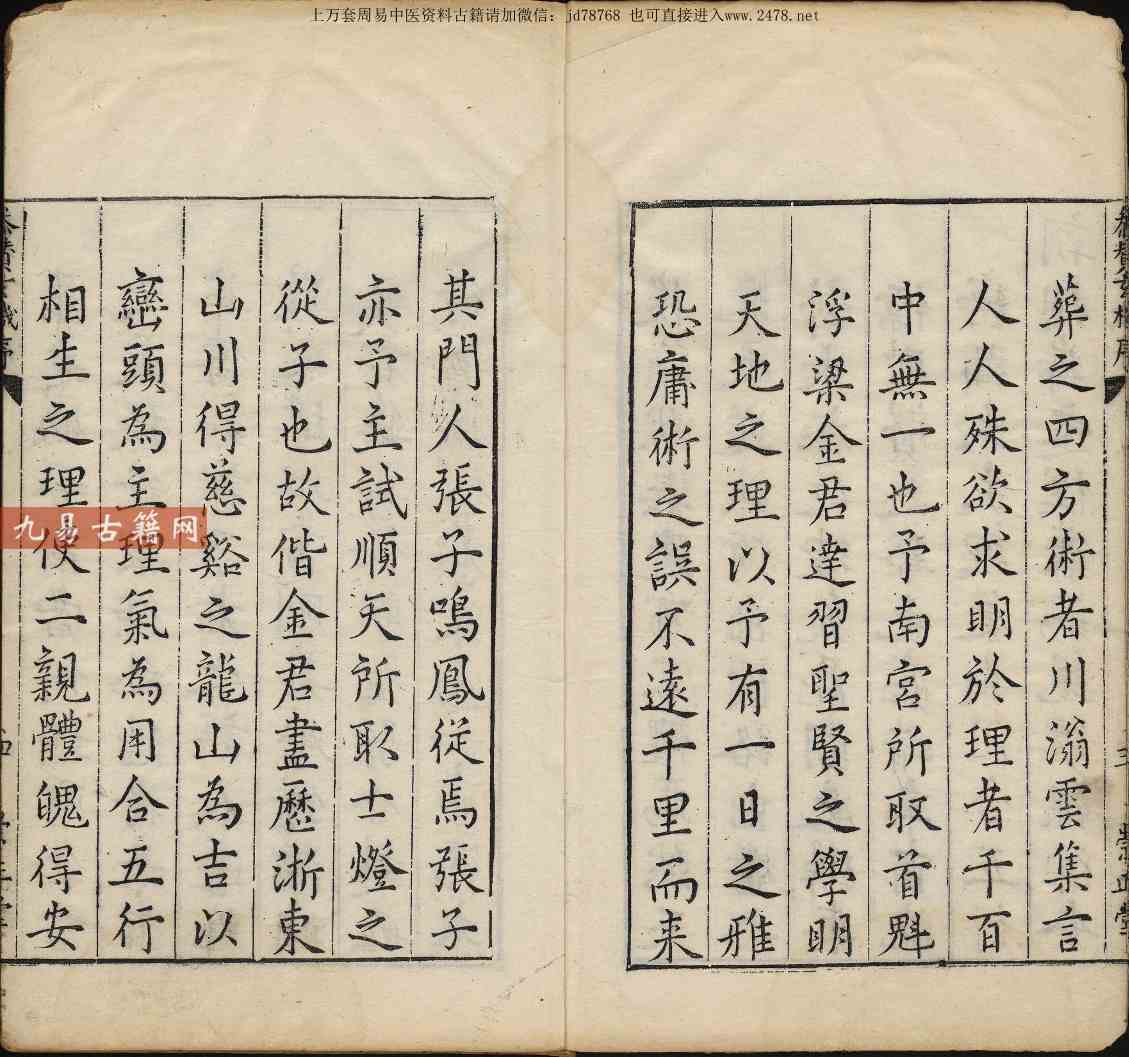 上万套周易中医资料古籍请加微信：jd78768 也可直接进入www.2478.net
葬之四方術者川滃雲集言
人人殊欲求明於理者千百
中無一也予南宮所取首魁
浮梁金君達習聖賢之學明
天地之理以予有一日之雅
恐庸術之誤不遠千里而来
其門人張子鳴鳳從焉張子
亦予主試順天所取士燈之
從子也故偕金君盡歷浙東
山川得慈谿之龍山為吉以
巒頭為主理氣為用合五行
相生之理使二親體魄得安
九易古籍网